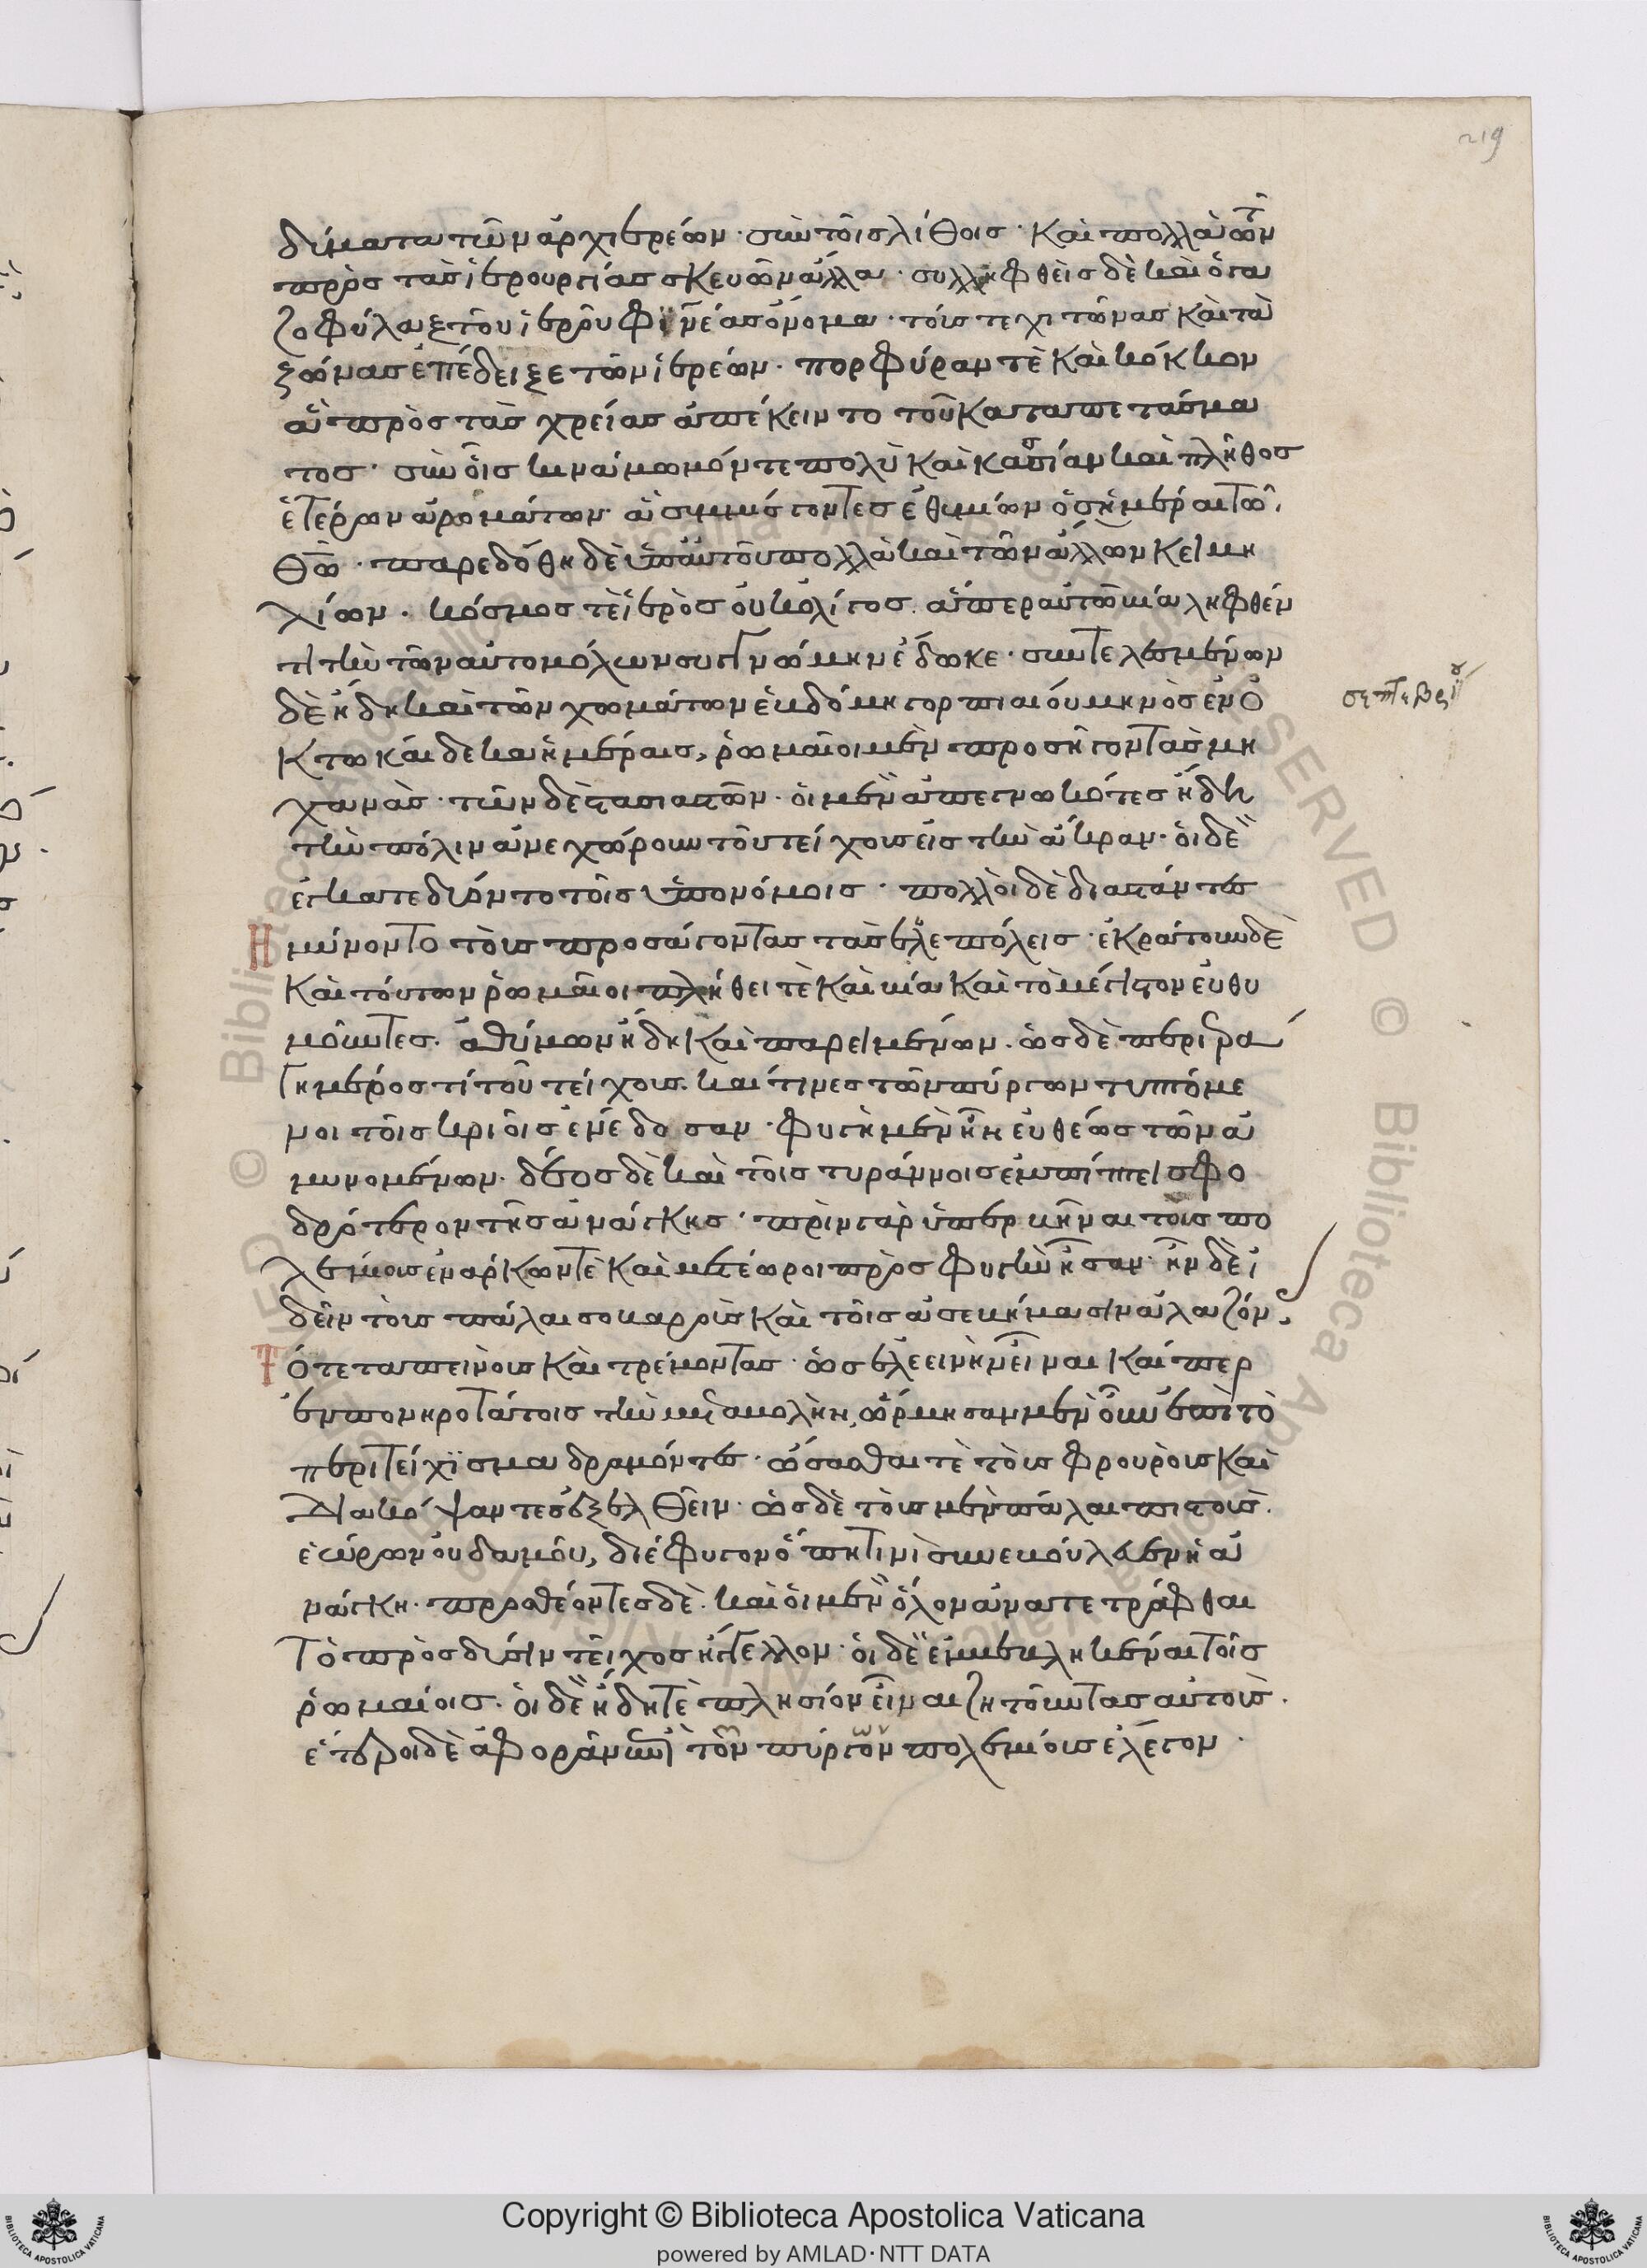 219
δύματα τῶν ἀρχιερέων· σὺν τοῖς λίθοις· καὶ πολλὰ τῶν
πρὸς τὰς ἱερουργίας σκευῶν ἄλλα· συλληφθεὶς δὲ καὶ ὁ γα
ζοφύλαξ τοῦ ἱεροῦ φινέας ὄνομα· τούς τε χιτῶνας καὶ τὰς
ζώνας ἐπέδειξε τῶν ἱερέων· πορφύραν τὲ καὶ κόκκον
ἃ πρὸς τὰς χρείας ἀπέκειντο τοῦ καταπετάσμα
τος· σὺν οἷς κινάμωμόν τε πολὺ καὶ κασίαν καὶ πλῆθος
ἑτέρων ἀρωμάτων· ἃ συμμίσγοντες ἐθυμίων ὁσημέραι τῶ
θῶ· παρεδόθη δὲ ὑπ' αὐτοῦ πολλὰ καὶ τῶν ἄλλων κειμη
λίων· κόσμος τὲ ἱερὸς οὐκ ὀλίγος· ἅπερ αὐτῶ βία ληφθέν
τι τὴν τῶν αὐτομόλων συγγνώμην ἔδωκε· συντελεσμένων
δὲ ἤδη καὶ τῶν χωμάτων ἑβδόμη γορπιαίου μηνὸς ἐν ὀ
σεπτεβρίου
κτωκαίδεκα ἡμέραις, ῥωμαῖοι μὲν προσῆγον τὰς μη
χανάς· τῶν δὲ στασιαστῶν· οἱ μὲν ἀπεγνωκότες ἤδη
τὴν πόλιν ἀνεχώρουν τοῦ τείχους εἰς τὴν ἄκραν· οἱ δὲ
ἐγκατεδύοντο τοῖς ὑπονόμοις· πολλοὶ δὲ διαστάντες
ἠμύνοντο τοὺς προσάγοντας τὰς ἑλεπόλεις· ἐκράτουν δὲ
καὶ τούτων ῥωμαῖοι πλήθει τὲ καὶ βία καὶ τὸ μέγιστον εὐθυ
μοῦντες· ἀθύμων ἤδη καὶ παρειμένων· ὡς δὲ περιερρά
γη μέρος τί τοῦ τείχους· καί τινες τῶν πύργων τυπτόμε
νοι τοῖς κριοῖς ἐνέδοσαν· φυγὴ μὲν ἦν εὐθέως τῶν ἀ
μυνομένων· δέος δὲ καὶ τοῖς τυράννοις ἐμπίπτει σφο
δρότερον τῆς ἀνάγκης· πρὶν γὰρ ὑπερβῆναι τοὺς πο
λεμίους ἐνάρκων τὲ καὶ μετέωροι πρὸς φυγὴν ἦσαν· ἦν δὲ ἰ
δεῖν τοὺς πάλαι σοβαροὺς καὶ τοῖς ἀσεβήμασιν ἀλαζόν
τότε ταπεινοὺς καὶ τρέμοντας· ὡς ἐλεεινὴν εἶναι καίπερ
ἐν πονηροτάτοις τὴν μεταβολὴν, ὥρμησαν μὲν οὖν ἐπὶ τὸ
περιτείχϊσμα δραμόντες· ὤσασθαι τὲ τοὺς φρουροὺς καὶ
διακόψαντες ἐξελθεῖν· ὡς δὲ τοὺς μὲν πάλαι πιστοὺς
ἑώρων οὐδαμοῦ, διέφυγον ὅπη τινὶ συνεβούλευεν ἡ ἀ
νάγκη· προσθέοντες δὲ· καὶ οἱ μὲν ὅλον ἀνατετράφθαι
τὸ πρὸς δύσιν τεῖχος ἤγγελλον· οἱ δὲ ἐμβεβληκέναι τοὺς
ῥωμαίους· οἱ δὲ ἤδη τὲ πλησίον εἶναι ζητοῦντας αὐτούς·
ἕτεροι δὲ ἀφορᾶν ἐπὶ τῶν πύργων πολεμίους ἔλεγον·
Copyright © Biblioteca Apostolica Vaticana
powered by AMLAD·NTT DATA